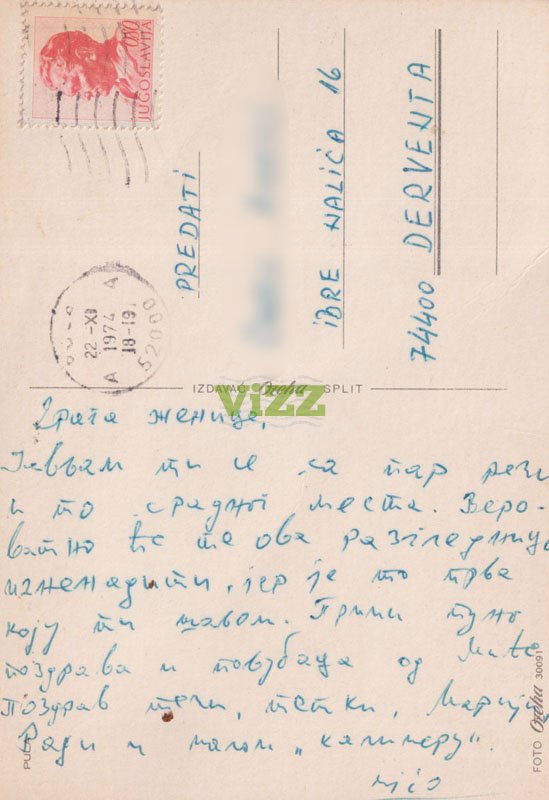 0,80
JUGOSLAVIJA
PREDATI
IBRE HALIĆA 16
74400 DERVENTA
22-XI
1974
18-19
A A
52000
IZDAVAČ Ozeha SPLIT
vizz
Драга женице,
Јављам ти се са пар речи
и то с радног места. Веро-
ватно ће те ова разгледница
изненадити, јер је то прва
коју ти шаљем. Прими пуно
поздрава и пољубаца од
Поздрав течи, тетки, Марији,
Ради и малом „калимеру".
PULA
FOTO Ozeha 30091